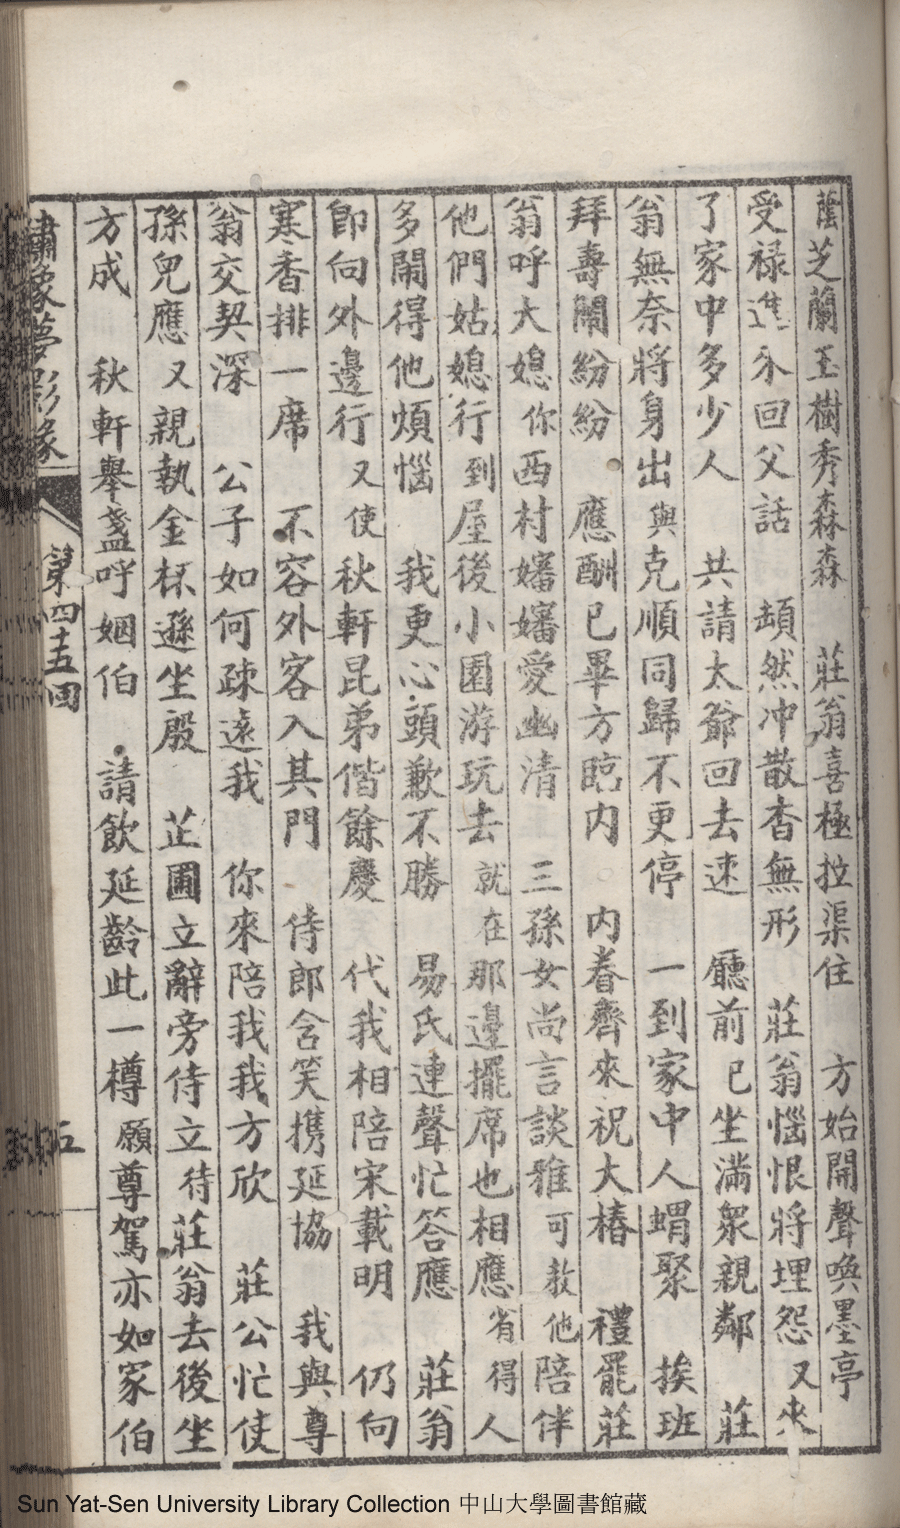 蔭芝蘭玉樹秀森森　莊翁喜極拉渠住　方始開聲喚墨亭
受祿進來回父話　頡然冲散杳無形　莊翁惱恨將埋怨又來
了家中多少人　共請太爺回去速　廳前已坐滿衆親鄰　莊
翁無奈將身出與克順同歸不更停　一到家中人蝟聚　挨班
拜壽鬧紛紛　應酬已畢方臨内　内眷齊來祝大椿　禮罷莊
翁呼大媳你西村嬸嬸愛幽清　三孫女尚言談雅可教他陪伴
他們姑媳行到屋後小園游玩去就在那邊擺席也相應省得人
多鬧得他煩惱　我更心頭歉不勝　易氏連聲忙答應　莊翁
即向外邊行又使秋軒昆弟偕餘慶　代我相陪宋載明　仍向
寒香排一席　不容外客入其門　侍郎含笑携延協　我與尊
翁交契深　公子如何疎遠我　你來陪我我方欣　莊公忙使
孫兒應又親執金杯遜坐殷　芷圃立辭旁侍立待莊翁去後坐
方成　秋軒舉盞呼姻伯　請飲延齡此一樽願尊駕亦如家伯
繡像夢影緣　第四十五回　五
Sun Yat-Sen University Library Collection 中山大學圖書館藏